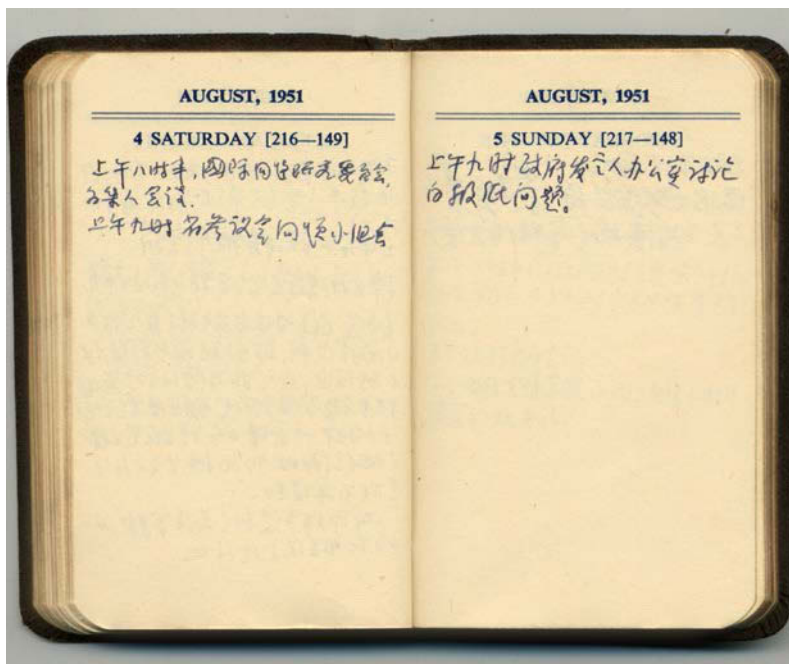 AUGUST, 1951
4 SATURDAY [216—149]
上午八时半,國际问
委员会
召集人会议.
上午九时 省参议会问题小组会
AUGUST, 1951
5 SUNDAY [217—148]
上午九时 政府发言人办公室讨论
白报纸问题。